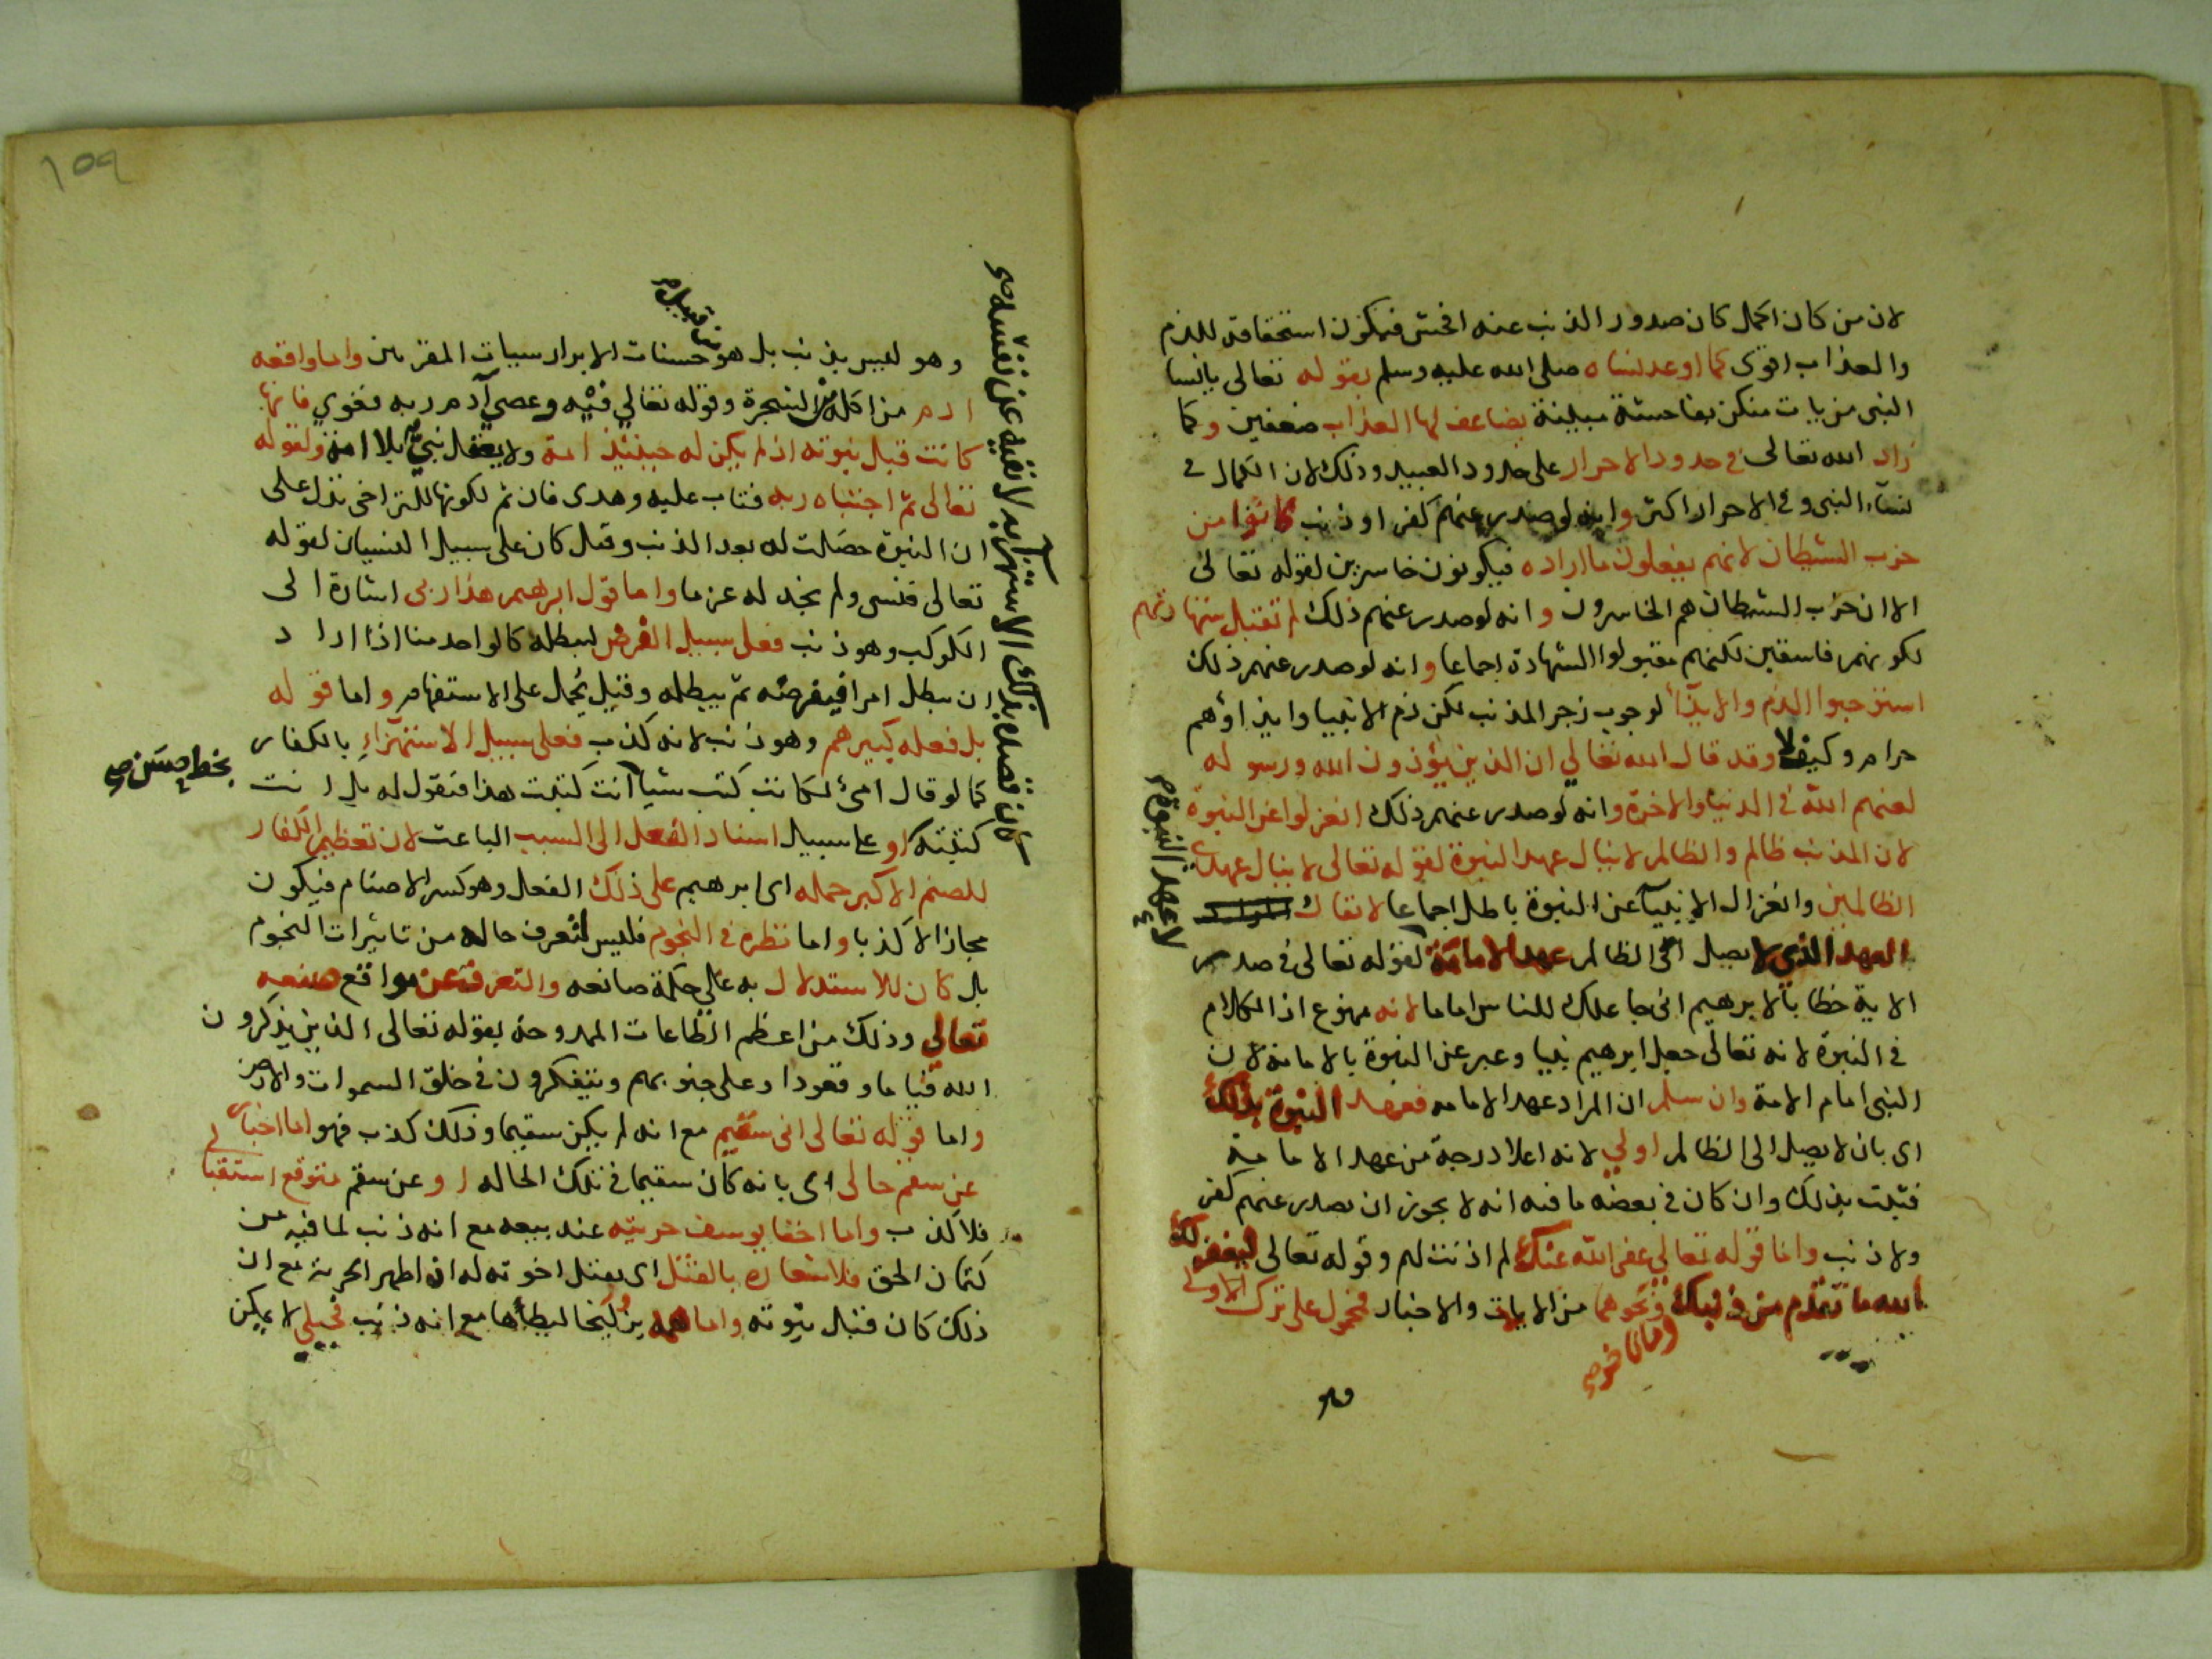 لان من كان اكمل كان صدور الذنب عنه افحش فيكون استحقاقه للذم
والعذاب اقوى كما اوعد نساه صلى الله عليه وسلم بقوله تعالى يانسا
النبى من يات منكن بفاحشة مبينة يضاعف لها العذاب ضعفين وكما
زاد الله تعالى في حدود الاحرار على حدود العبيد وذلك لان الكمال في
نساء النبى وفي الاحرار اكثر وانه لو صدر عنهم كفر او ذنب كانوا من
حزب الشيطان لانهم يفعلون ما اراده فيكونون خاسرين لقوله تعالى
الا ان حزب الشيطان هم الخاسرون وانه لو صدر عنهم ذلك لم تقبل شهادتهم
لكونهم فاسقين لكنهم مقبولوا الشهادة اجماعا وانه لو صدر عنهم ذلك
استوجبوا الذم والايذاء لوجوب زجر المذنب لكن ذم الانبيا وايذاؤهم
حرام وكيف لا وقد قال الله تعالي ان الذين يؤذون الله ورسوله
لعنهم الله في الدنيا والاخرة وانه لو صدر عنهم ذلك انعزلوا عن النبوة
لان المذنب ظالم والظالم لا ينال عهد النبوة لقوله تعالى لا ينال عهدى
الظالمين وانعزال الانبيآ عن النبوة باطل اجماعا لا يقال
العهد الذي لا يصل الى الظالم عهد الامامة لقوله تعالى في صدر
لا عهد النبوة
الاية خطابا لابرهيم انى جاعلك للناس اماما لانه ممنوع اذ الكلام
في النبوة لانه تعالى جعل ابرهيم نبيا وعبر عن النبوة بالامامة لان
النبى امام الامة وان سلم ان المراد عهد الامامه فعهد النبوة بذلك
اى بان لا يصل الى الظالم اولي لانه اعلا درجة من عهد الامامية
فثبت بذلك وان كان في بعضه ما فيه انه لا يجوز ان يصدر عنهم كفر
ولا ذنب واما قوله تعالي عفى الله عنك لم اذنت لهم وقوله تعالى ليغفر لك
الله ما تقدم من ذنبك ونحوهما من الايات والاخبار فمحمول على ترك الاولى
وما تاخر
وهو
وهو ليس بذنب بل هو حسنات الابرار سيات المقربين واما واقعه
من قبيل
ادم من اكله من الشجرة وقوله تعالي فيه وعصى آدم ربه فغوي فانها
كانت قبل نبوته اذ لم يكن له حينئذ امة ولا يعقل نبي بلا امة ولقوله
تعالى ثم اجتباه ربه فتاب عليه وهدى فان ثم لكونها للتراخى تدل على
ان النبوة حصلت له بعد الذنب وقيل كان على سبيل النسيان لقوله
تعالى فنسى ولم نجد له عزما واما قول ابرهيم هذا ربى اشارة الى
الكوكب وهو ذنب فعلى سبيل الفرض ليبطله كالواحد منا اذا اراد
ان يبطل امرا فيفرضه ثم يبطله وقيل يحمل على الاستفهام واما قوله
بل فعله كبيرهم وهو ذنب لانه كذب فعلى سبيل الاستهزاء بالكفار
كما لو قال امئ لكاتب كتب شيا آنت كتبت هذا فتقول له بل انت
بخط حسن
كتبته او على سبيل اسناد الفعل الى السبب الباعث لان تعظيم الكفار
للصنم الاكبر حمله اى ابرهيم على ذلك الفعل وهو كسر الاصنام فيكون
مجازا لا كذبا واما نظره في النجوم فليس لتعرف حاله من تاثيرات النجوم
بل كان للاستدلال به على حكمة صانعه والتعرف عن مواقع صنعه
تعالي وذلك من اعظم الطاعات الممدوحة بقوله تعالى الذين يذكرون
الله قياما وقعودا وعلى جنوبهم ويتفكرون في خلق السموات والارض
واما قوله تعالى انى سقيم مع انه لم يكن سقيما وذلك كذب فهو اما اخبار
عن سقم حالى اى بانه كان سقيما في تلك الحاله او عن سقم متوقع استقبالى
فلا كذب واما اخفا يوسف حريته عند بيعه مع انه ذنب لما فيه من
كتمان الحق فلاشعاره بالقتل اى بقتل اخوته له ان اظهر الحرية مع ان
ذلك كان قبل نبوته واما همه بزليخا ليطأها مع انه ذنب فجبلي لا يمكن
كان قصده بذلك الاستهزا به لا نفيه عن نفسه
١٥٩